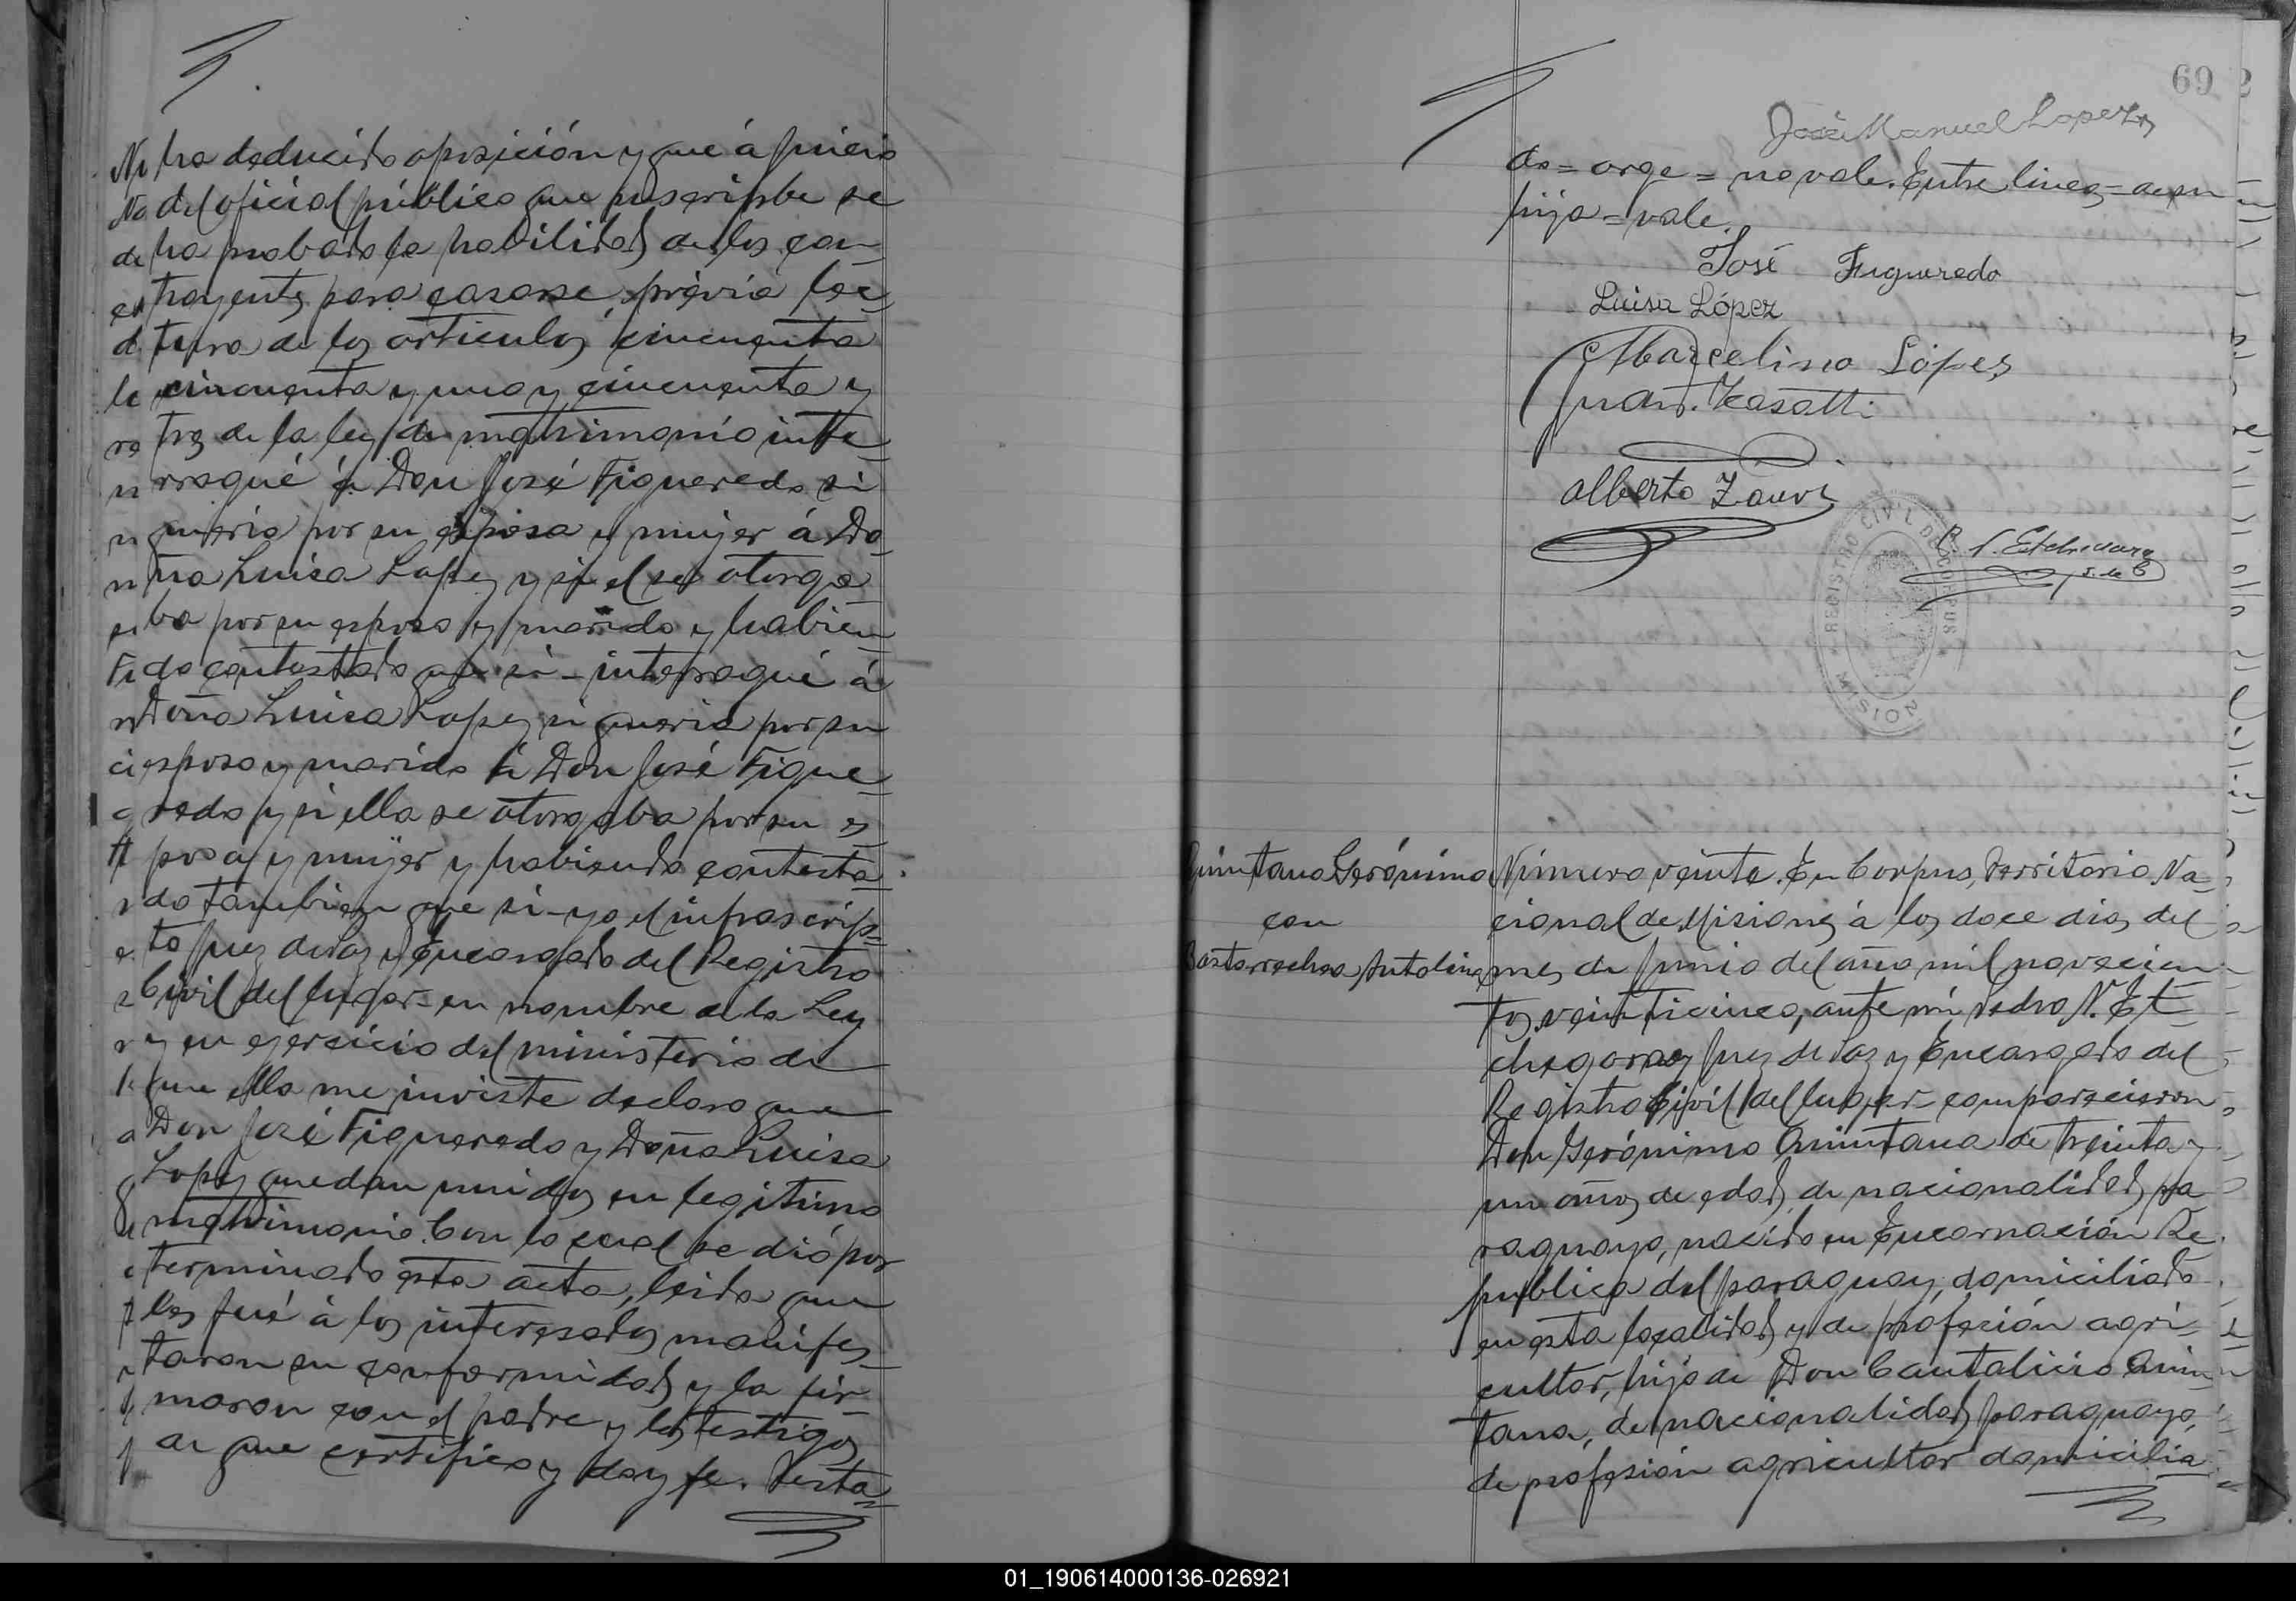 ha deducido oposición y que á juicio
del oficial público que suscripbe se
ha probado la habilidad de los con-
trayentes para casarse, prévia lec-
tura de los articulos cincuenta
cincuenta y uno y cincuenta y
tres de la ley de matrimonio inte-
rrogué á Don José Figueredo si
queria por su esposa y mujer á Do-
ña Luisa Lopez y si el se otorga-
ba por su esposo y marido y habien-
do contestado que si - interrogué á
Doña Luisa Lopez si queria por su
esposo y marido á Don José Figue-
redo y si ella se otorgaba por su es-
posa y mujer y habiendo contesta-
do tambien que si - yo el infrascrip-
to Juez de Paz y Encargado del Registro
Civil del lugar - en nombre de la Ley
y en ejercicio del ministerio de
que ella me inviste declaro que
Don José Figueredo y Doña Luisa
Lopez quedan unidos en legitimo
matrimonio. Con lo cual se dió por
terminado esta acta, leida que
les fué á los interesados manifes-
taron su conformidad y la fir-
maron con el padre y los testigos
de que certifico y doy fe. Testa-
69
José Manuel Lopez
do = orge = no vale. Entre linea = de su
hija = vale.
José Figueredo
Luisa López
Marcelino López
Juan
Alberto
P. N. Etchegaray
J. de P.
REGISTRO CIVIL DE CORPUS
MISIONES
Quintana Gerónimo
con
Bastarrechea Antolina
Número veinte. En Corpus, Territorio Na-
cional de Misiones á los doce dias del
mes de Junio del año mil novecien-
tos veinticinco, ante mi Pedro N. Et-
chegaray Juez de Paz y Encargado del
Registro Civil del lugar - comparecieron
Don Gerónimo Quintana de treinta y
un años de edad, de nacionalidad pa-
raguaya, nacido en Encarnación Re-
publica del paraguay, domiciliado
en esta localidad y de profesión agri-
cultor, hijo de Don Cantalicio Quin-
tana, de nacionalidad paraguaya,
de profesión agricultor domicilia-
01_190614000136-026921